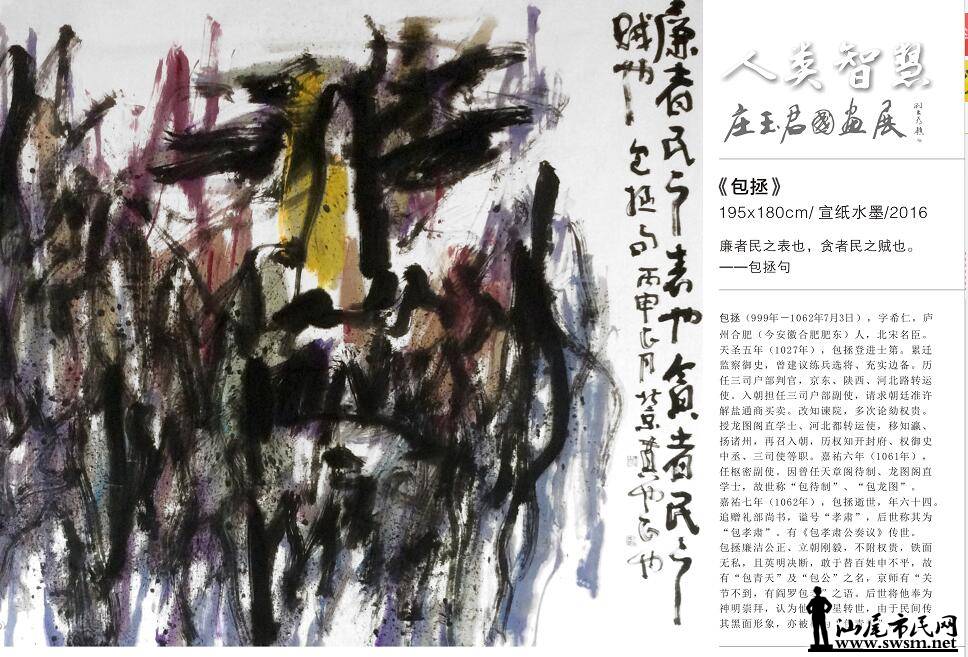 廉者民之表也贪者民之
贼也
包拯句丙申正月北京
人类智慧
庄玉君国画展
《包拯》
195x180cm/ 宣纸水墨/2016
廉者民之表也，贪者民之贼也。
——包拯句
包拯（999年－1062年7月3日），字希仁，庐
州合肥（今安徽合肥肥东）人，北宋名臣。
天圣五年（1027年），包拯登进士第。累迁
监察御史，曾建议练兵选将、充实边备。历
任三司户部判官，京东、陕西、河北路转运
使。入朝担任三司户部副使，请求朝廷准许
解盐通商买卖。改知谏院，多次论劾权贵。
授龙图阁直学士、河北都转运使，移知瀛、
扬诸州，再召入朝，历权知开封府、权御史
中丞、三司使等职。嘉祐六年（1061年），
任枢密副使。因曾任天章阁待制、龙图阁直
学士，故世称“包待制”、“包龙图”。
嘉祐七年（1062年），包拯逝世，年六十四。
追赠礼部尚书，谥号“孝肃”，后世称其为
“包孝肃”。有《包孝肃公奏议》传世。
包拯廉洁公正、立朝刚毅，不附权贵，铁面
无私，且英明决断，敢于替百姓申不平，故
有“包青天”及“包公”之名，京师有“关
节不到，有阎罗包老”之语。后世将他奉为
神明崇拜，认为他 星转世，由于民间传
其黑面形象，亦被
汕尾市民网
www.swsm.net